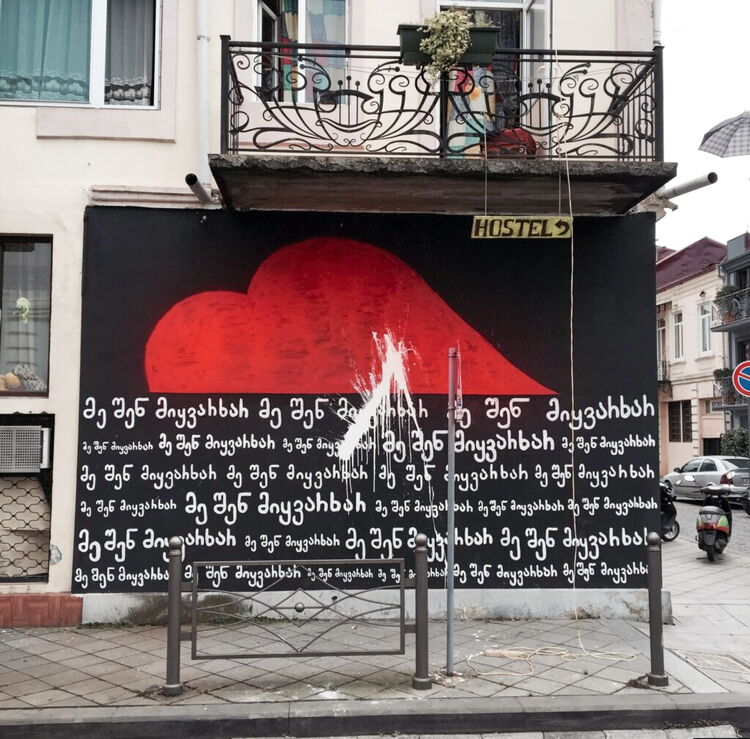 HOSTEL
მე შენ მიყვარხარ მე შენ მიყვარხარ მე შენ მიყვარხარ
მე შენ მიყვარხარ მე შენ მიყვარხარ მე შენ მიყვარხარ მე შენ მიყვარხარ მე შენ მიყვარხარ
მე შენ მიყვარხარ მე შენ მიყვარხარ მე შენ მიყვარხარ მე შენ მიყვარხარ
მე შენ მიყვარხარ მე შენ მიყვარხარ მე შენ მიყვარხარ მე შენ მიყვარხარ მე შენ მიყვარხარ
მე შენ მიყვარხარ მე შენ მიყვარხარ მე შენ მიყვარხარ მე შენ მიყვარხარ
მე შენ მიყვარხარ მე შენ მიყვარხარ მე შენ მიყვარხარ მე შენ მიყვარხარ მე შენ მიყვარხარ მე შენ მიყვარხარ